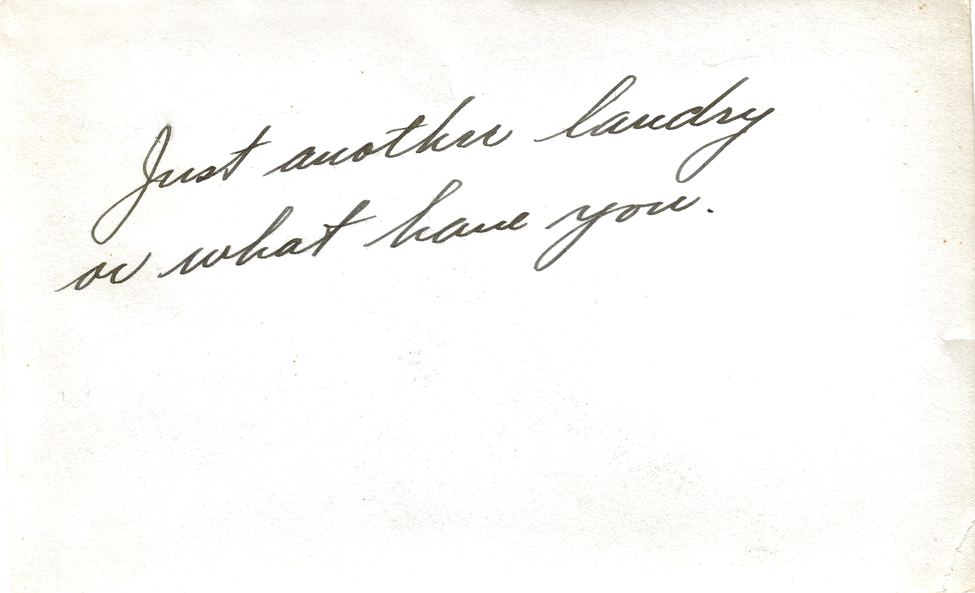 Just another landry
or what have you.